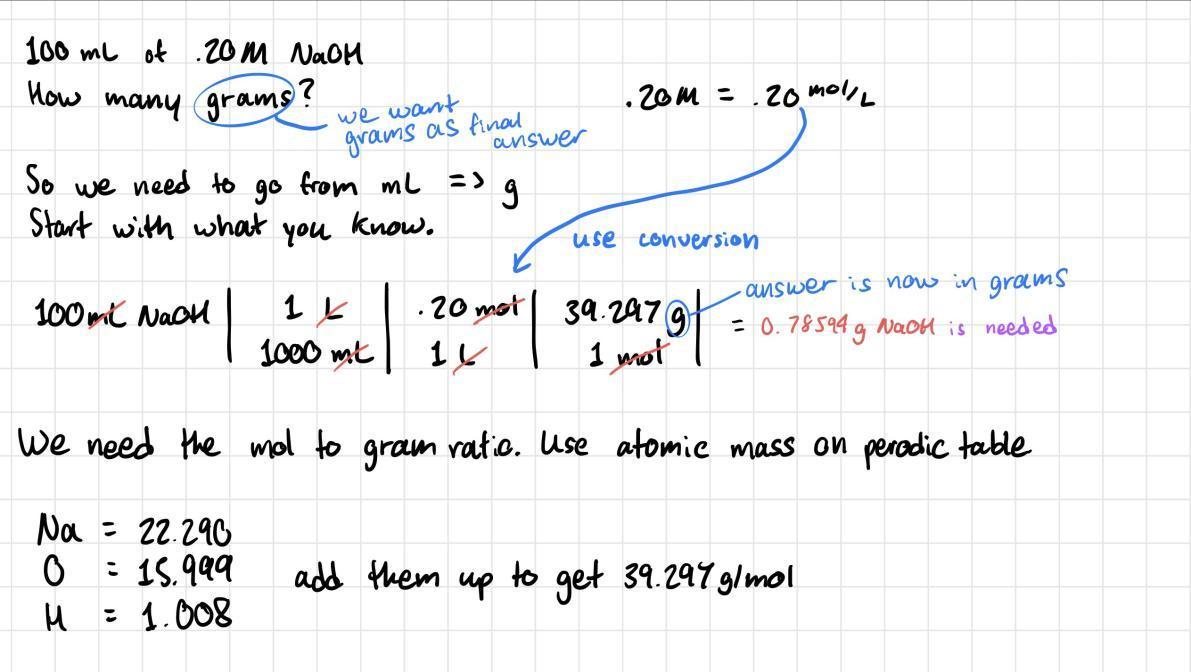 100 mL of .20M NaOH
How many grams?
we want
grams as final
answer
.20M = .20 mol/L
So we need to go from mL => g
Start with what you know.
use conversion
100 mL NaOH | 1 L | .20 mol | 39.297 g |
1000 mL | 1 L | 1 mol
answer is now in grams
= 0.78594 g NaOH is needed
We need the mol to gram ratio. Use atomic mass on perodic table
Na = 22.290
O = 15.999
H = 1.008
add them up to get 39.297 g/mol